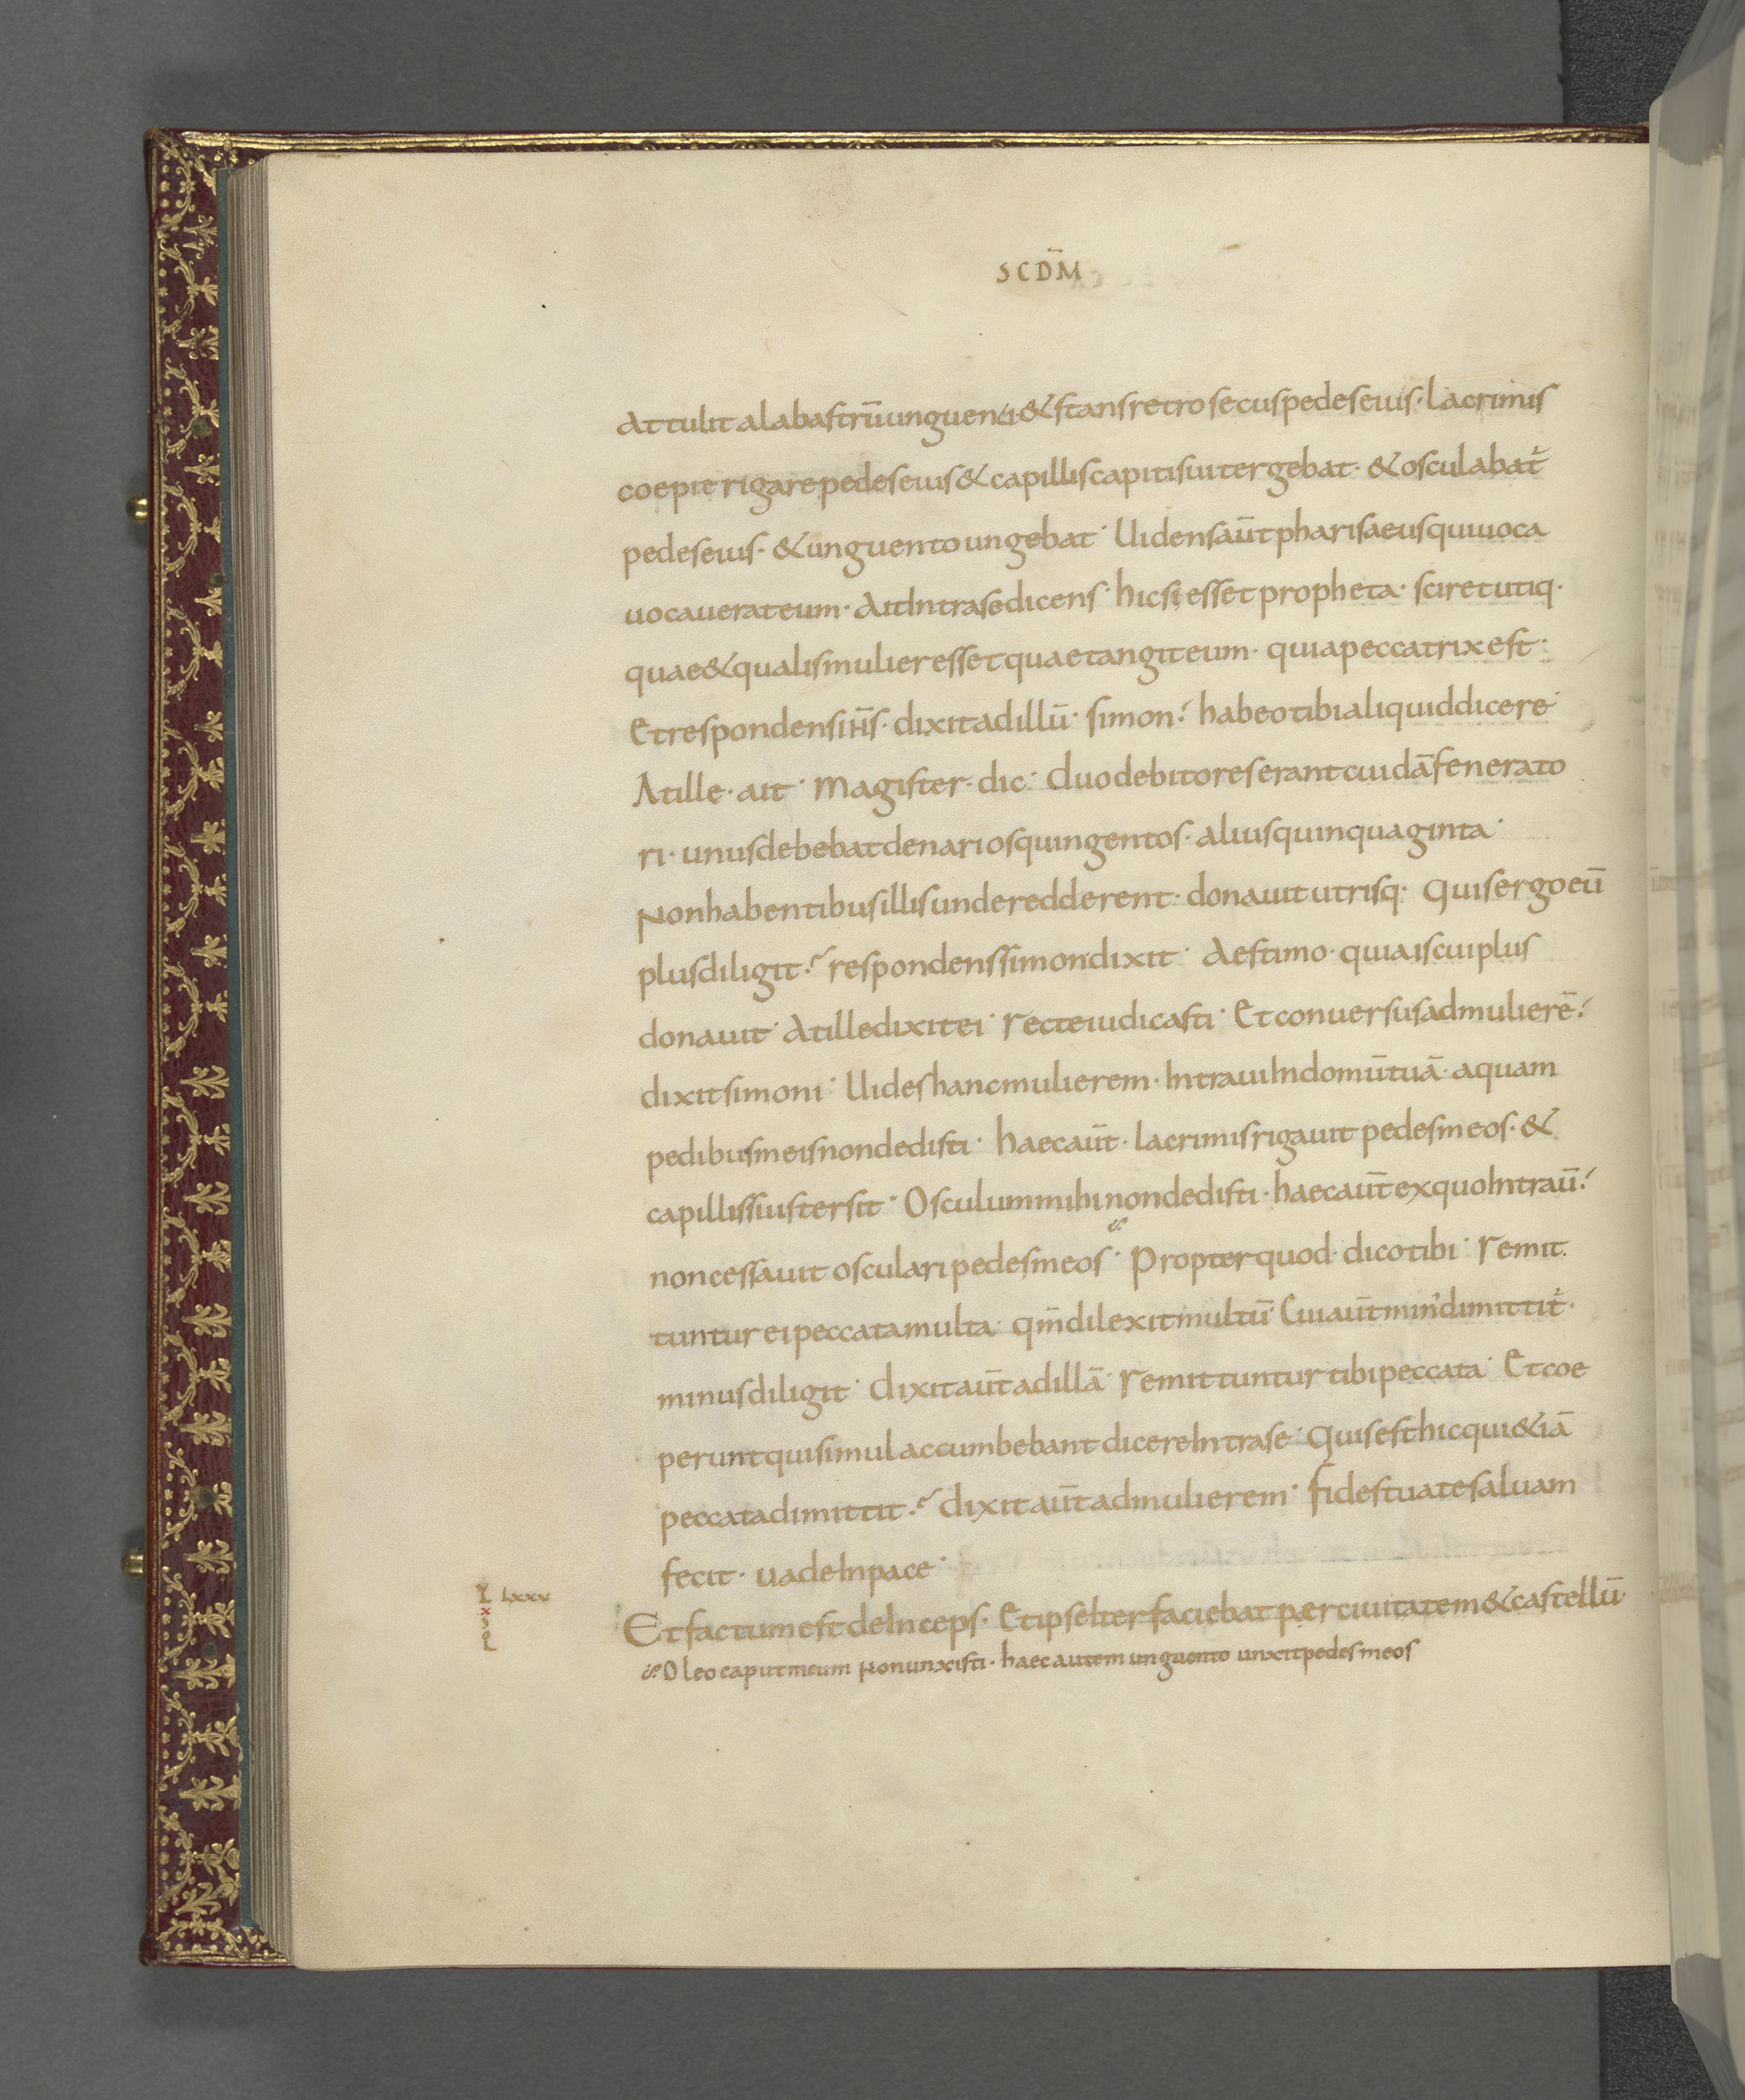 SCD̄M
Attulit alabastrū unguenti· & stans retro secus pedes eius· lacrimis
coepit rigare pedes eius & capillis capitis sui tergebat· & osculabat̄
pedes eius· & unguento ungebat· Uidens aūt pharisaeus qui uoca
uocauerat eum· Ait intra se dicens· hic si esset propheta· sciret utiq·
quae & qualis mulier esset quae tangit eum· quia peccatrix est·
Et respondens ih̄s· dixit ad illū· simon? habeo tibi aliquid dicere·
At ille· ait· magister· dic· duo debitores erant cuidā fenerato
ri· unus debebat denarios quingentos· alius quinquaginta·
Non habentibus illis unde redderent· donauit utrisq· Quis ergo eū
plus diligit? respondens simon dixit· Aestimo· quia is cui plus
donauit· At ille dixit ei· recte iudicasti· Et conuersus ad mulierē?
dixit simoni· Uides hanc mulierem· Intraui In domū tuā· aquam
pedibus meis non dedisti· haec aūt· lacrimis rigauit pedes meos· &
capillis suis tersit· Osculum mihi non dedisti· haec aūt ex quo Intrau̅?
non cessauit osculari pedes meos· Propter quod· dico tibi· remit
tuntur ei peccata multa· qm̄ dilexit multū· Cui aūt min' dimittit̄·
minus diligit· dixit aūt ad illā· remittuntur tibi peccata· Et coe
perunt qui simul accumbebant dicere Intra se· Quis est hic qui & iā
peccata dimittit? dixit aūt ad mulierem· fides tua te saluam
fecit· uade In pace·
lxxv
Et factum est deInceps· Et ipse Iter faciebat per ciuitatem & castellū·
Oleo caput meum Non unxisti· haec autem unguento unxit pedes meos